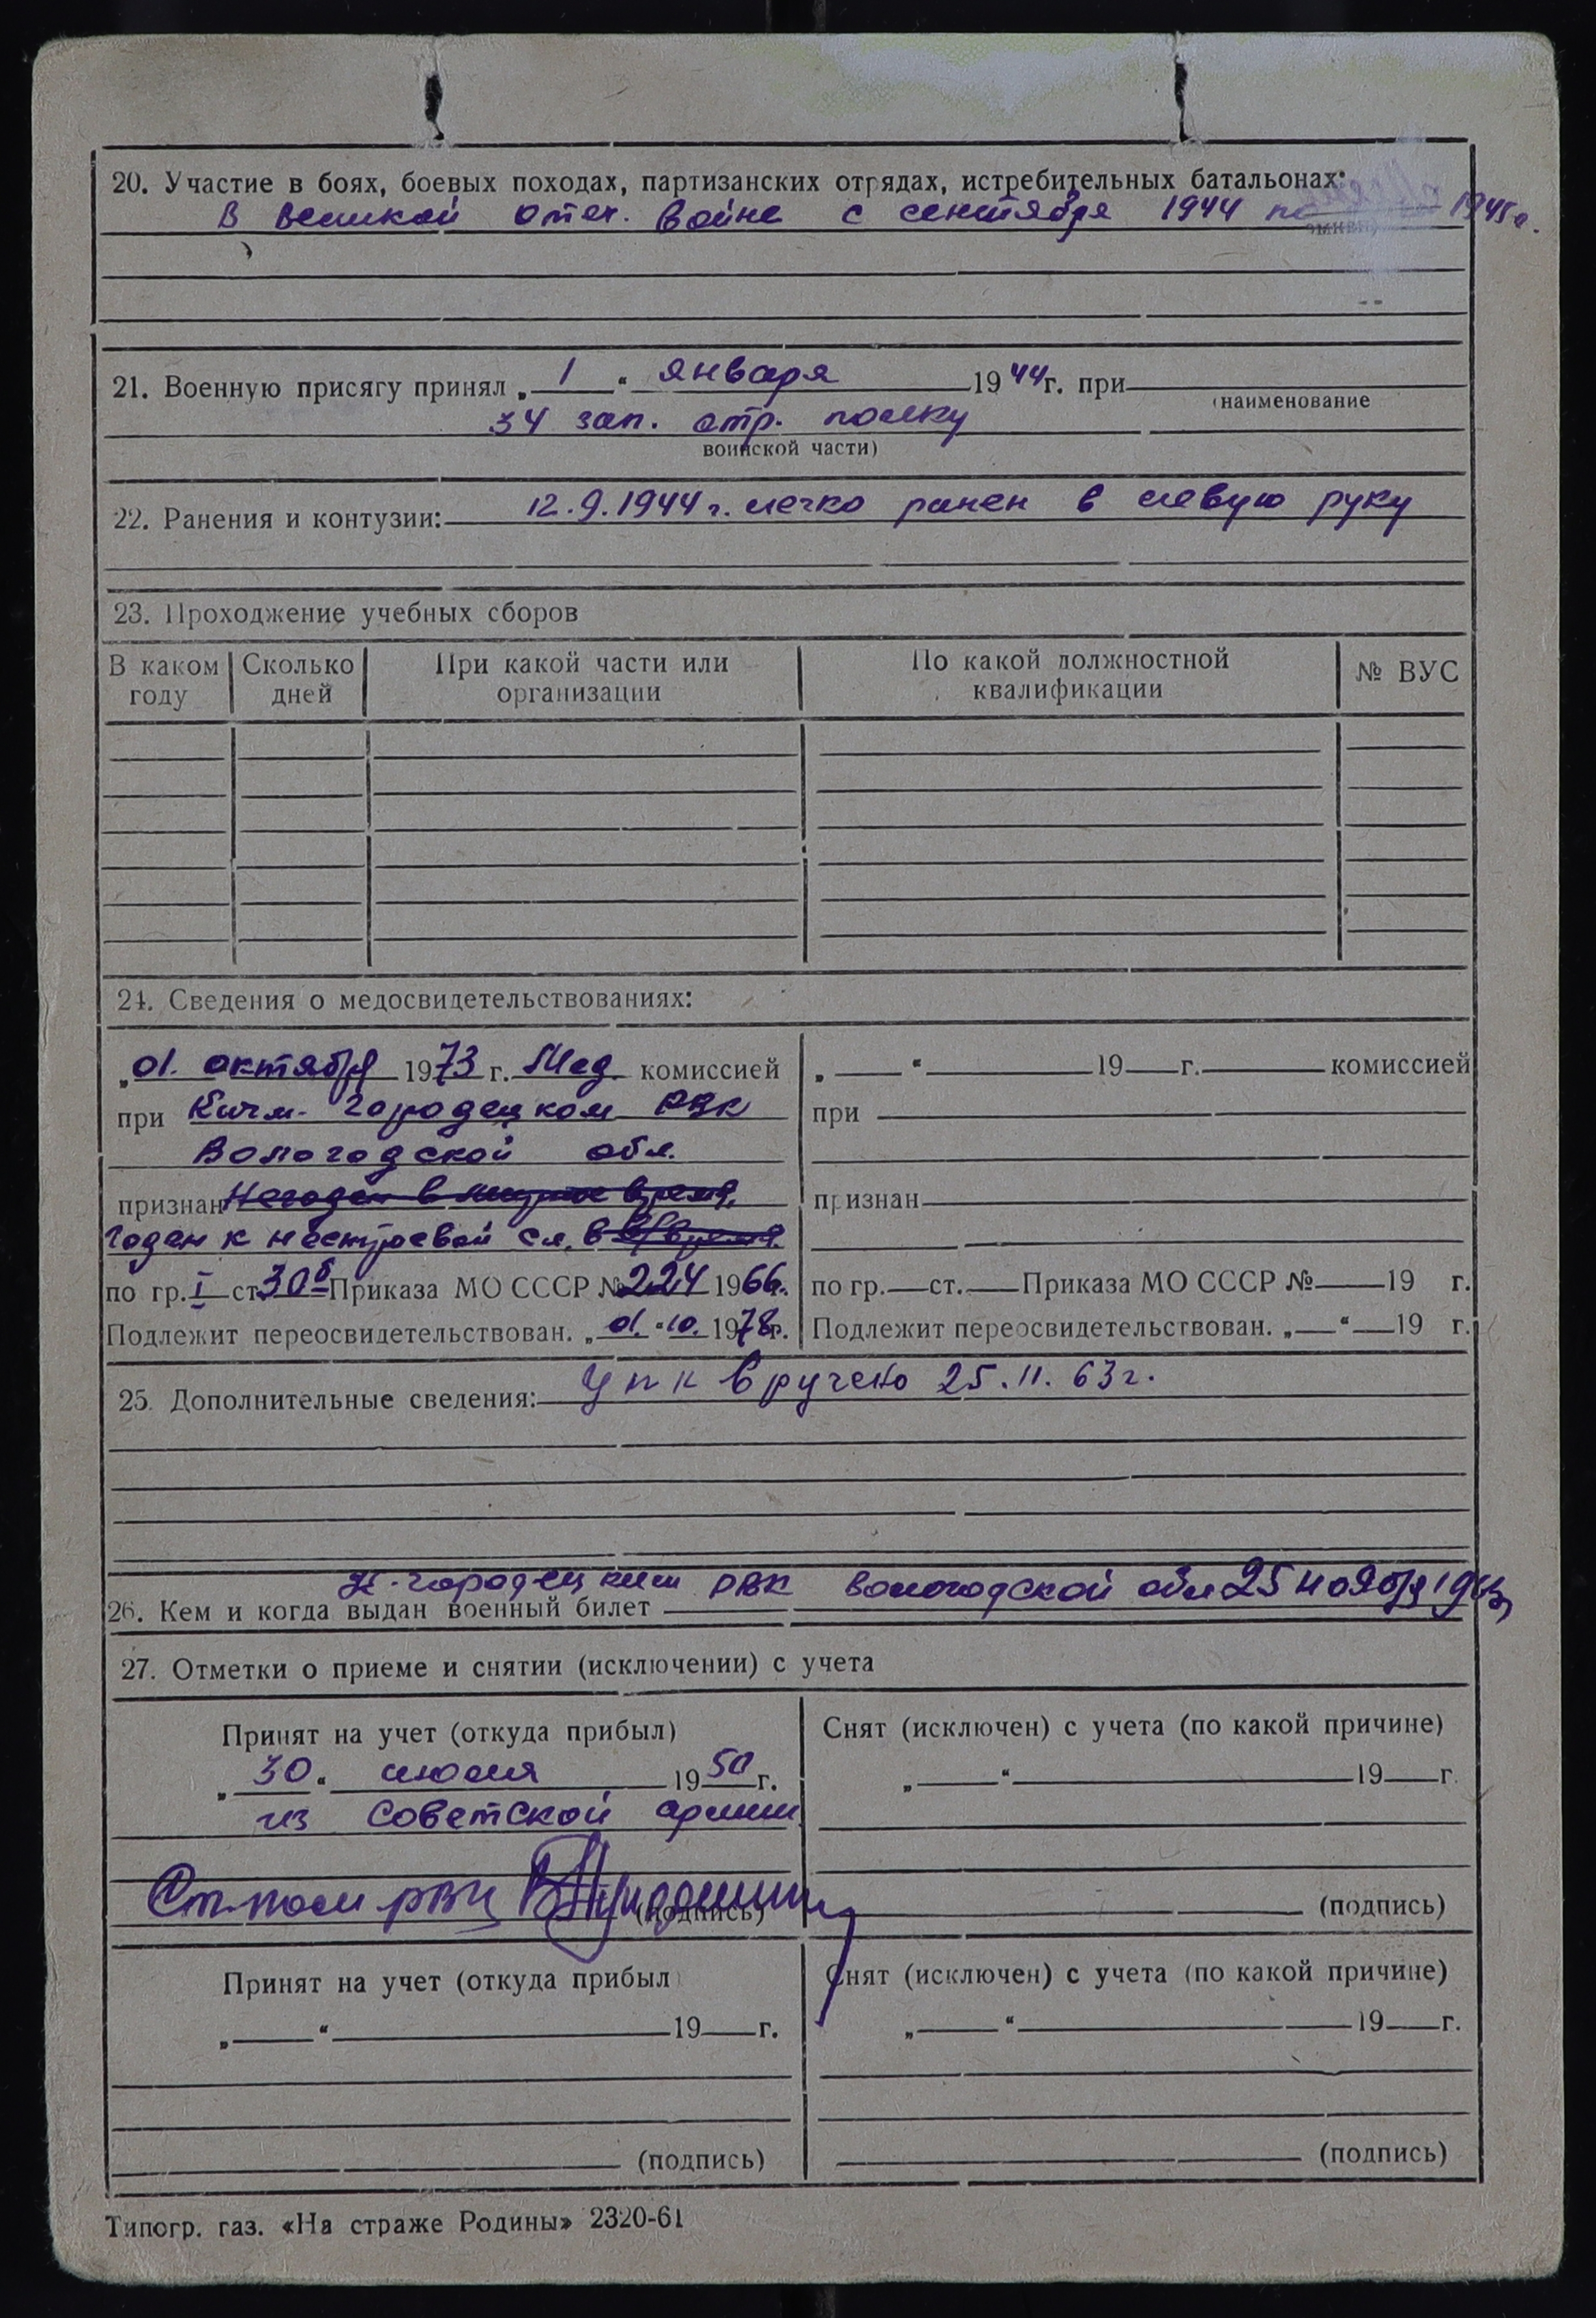 20. Участие в боях, боевых походах, партизанских отрядах, истребительных батальонах:
В Великой отеч. войне с сентября 1944 по 1945г.
21. Военную присягу принял „ 1 “ января 1944г. при
(наименование
34 зап. стр. полку
воинской части)
22. Ранения и контузии: 12.9.1944г. легко ранен в левую руку
23. Прохождение учебных сборов
В каком году Сколько дней При какой части или организации По какой должностной квалификации № ВУС
24. Сведения о медосвидетельствованиях:
„01. октября 1973 г. Мед. комиссией
при Кичм-Городецком РВК
Вологодской обл.
признан Негоден в мирное время,
годен к нестроевой сл. в в/время.
по гр. I ст. 30б Приказа МО СССР № 224 1966г.
Подлежит переосвидетельствован. „01.“10. 1978г.
„ “ 19 г. комиссией
при
признан
по гр. ст. Приказа МО СССР № 19 г.
Подлежит переосвидетельствован. „ “ 19 г.
25. Дополнительные сведения: УПК вручено 25.11.63г.
К-городецким РВК Вологодской обл 25 ноября 1963
26. Кем и когда выдан военный билет
27. Отметки о приеме и снятии (исключении) с учета
Принят на учет (откуда прибыл)
„ 30 “ июля 1950 г.
из Советской армии
Ст. пом РВК
(подпись)
Снят (исключен) с учета (по какой причине)
„ “ 19 г.
(подпись)
Принят на учет (откуда прибыл
„ “ 19 г.
(подпись)
Снят (исключен) с учета (по какой причине)
„ “ 19 г.
(подпись)
Типогр. газ. «На страже Родины» 2320-61